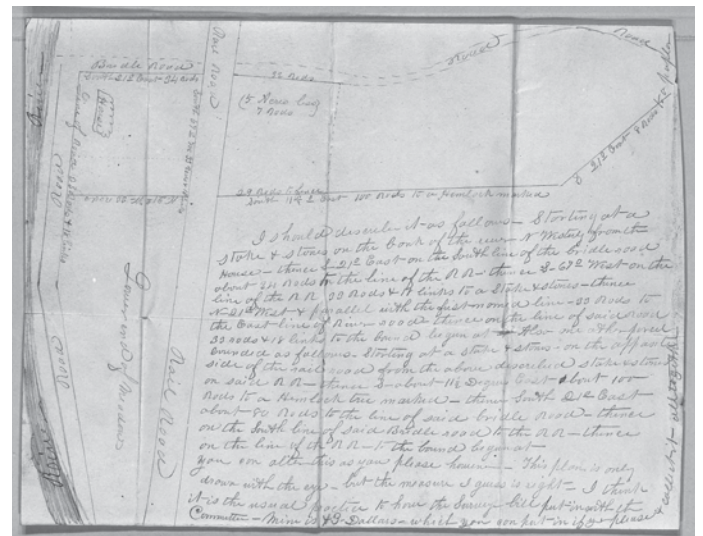 Road
Road
Bridle Road
South 21½ East 34 Rods
Rail Road
(5 Acres less
7 Rods
21½ East 8 Rods to a poplar
29 Rods to
South 11½ East 100 Rods to a hemlock marked
River
Rail Road
River
I should describe it as follows - Starting at a
stake & stones on the bank of the river N Westerly from the
House - thence S-21½ East on the South line of the bridle road
about 34 Rods to the line of the RR - thence S-67½ West on the
line of the RR 33 Rods & 18 links to a Stake & stones - thence
N-21½ West & parallel with the first named line - 33 Rods to
the East line of River road thence on the line of said road
33 rods & 18 links to the bound began at - Also one other piece
bounded as follows - Starting at a stake & stones on the opposite
side of the rail road from the above described stake & stones
on said RR - thence S-about 11½ Degrees East about 100
Rods to a Hemlock tree marked - thence South 21½ East
about 80 Rods to the line of said bridle Road - thence
on the South line of said Bridle road to the RR - thence
on the line of the RR - to the bound began at
you can alter this as you please however - This plan is only
drawn with the eye - but the measure I guess is right - I think
it is the usual practice to have the Survey bill put in with the
Committee - Mine is $9-Dollars - which you can put in if you please &
collect it all together